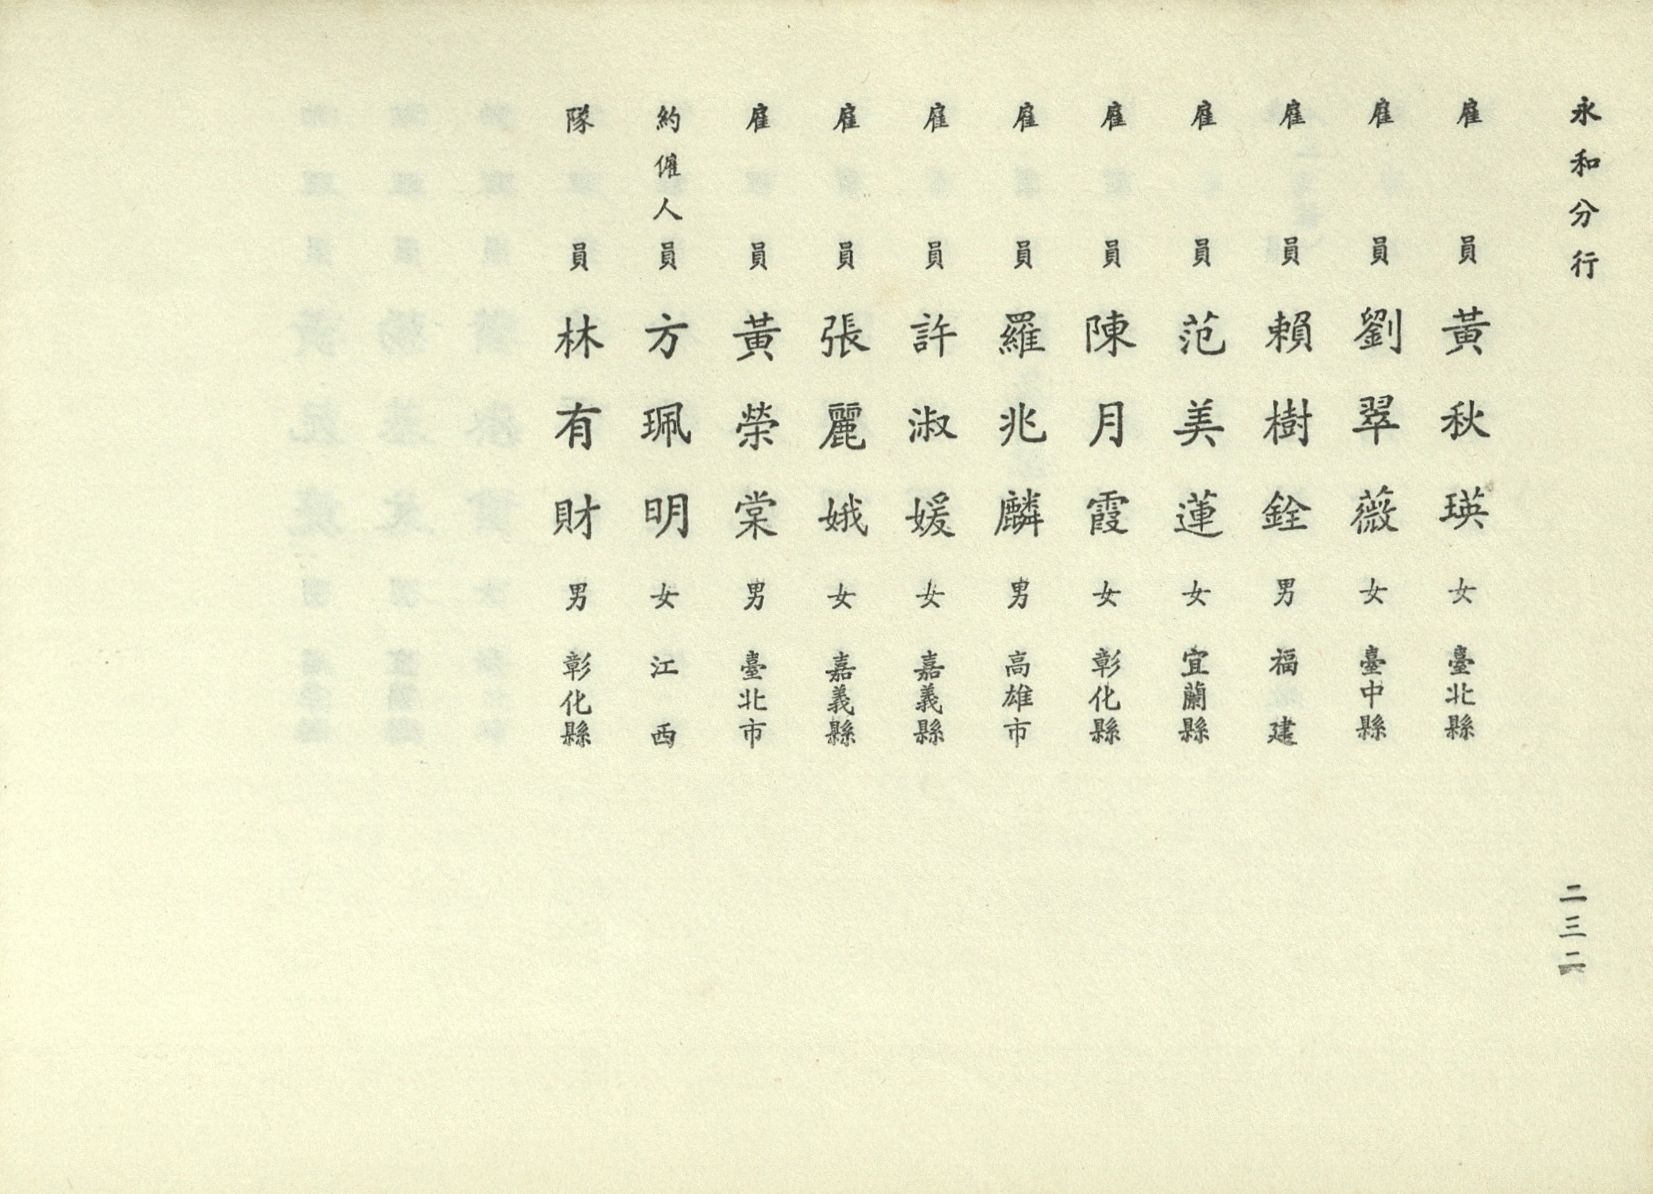 永和分行
二三二
雇員 黃秋瑛 女 臺北縣
雇員 劉翠薇 女 臺中縣
雇員 賴樹銓 男 福建
雇員 范美蓮 女 宜蘭縣
雇員 陳月霞 女 彰化縣
雇員 羅兆麟 男 高雄市
雇員 許淑媛 女 嘉義縣
雇員 張麗娥 女 嘉義縣
雇員 黃榮棠 男 臺北市
約僱人員 方珮明 女 江西
隊員 林有財 男 彰化縣